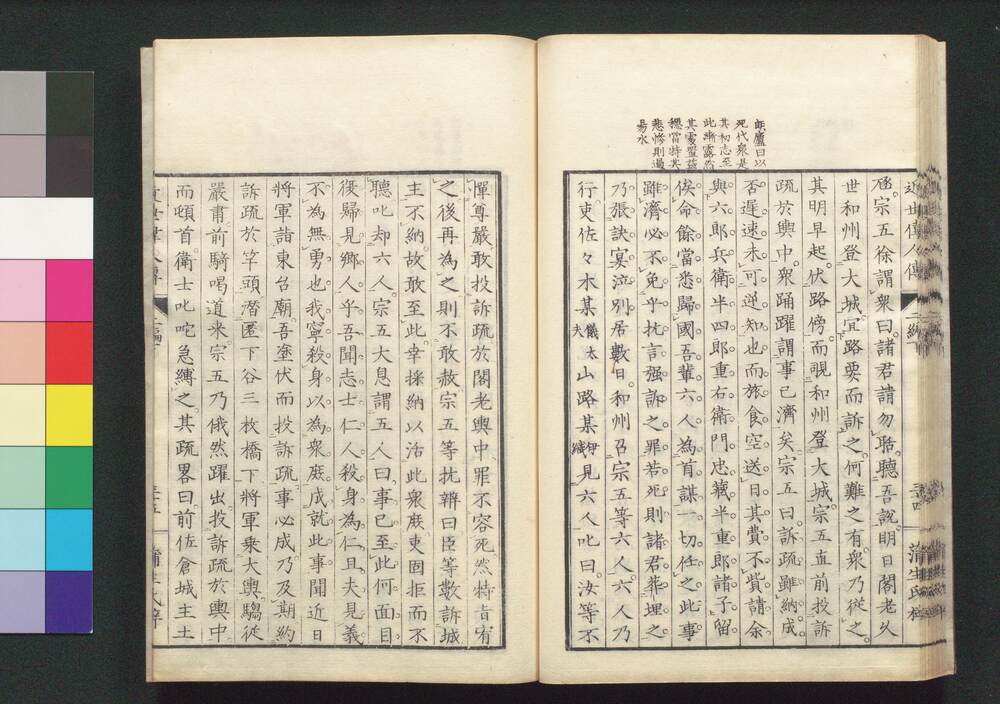 岷廬曰以
死代衆是
其初志至
此漸露而
其處置蘊
穩當特其
悲慘則過
易水
近世偉人傳
丞宗五徐謂衆曰諸君請勿聒聽吾説明日閣老久
世和州登大城宜路要而訴之何難之有衆乃從之
其明早起伏路傍而覗和州登大城宗五直前投訴
疏於輿中衆踊躍謂事已濟矣宗五曰訴疏雖納成
否遲速未可逆知也而旅食空送日其費不貲請余
與六郎兵衛半四郎重右衛門忠藏半重郎諸子留
俟命餘當悉歸國吾輩六人為首謀一切任之此事
雖濟必不免乎抗言强訴之罪若死則諸君葬埋之
乃張訣宴泣別居數日和州召宗五等六人六人乃
行吏佐々木某儀太夫山路某伊織見六人叱曰汝等不
三四
蒲生氏梓
憚尊嚴敢投訴疏於閣老輿中罪不容死然特旨宥
之後再為之則不敢赦宗五等抗辨曰臣等數訴城
主不納故敢至此幸採納以活此衆庶吏固拒而不
聽叱却六人宗五大息謂五人曰事已至此何面目
復歸見鄉人乎吾聞志士仁人殺身為仁且夫見義
不為無勇也我寧殺身以為衆庶成就此事聞近日
將軍詣東台廟吾塗伏而投訴疏事必成乃及期約
訴疏於竿頭潛匿下谷三枚橋下將軍乘大輿騶從
嚴肅前騎喝道來宗五乃俄然躍出投訴疏於輿中
而頓首衛士叱咤急縛之其疏畧曰前佐倉城主土
近世偉人傳
三五
蒲生氏梓